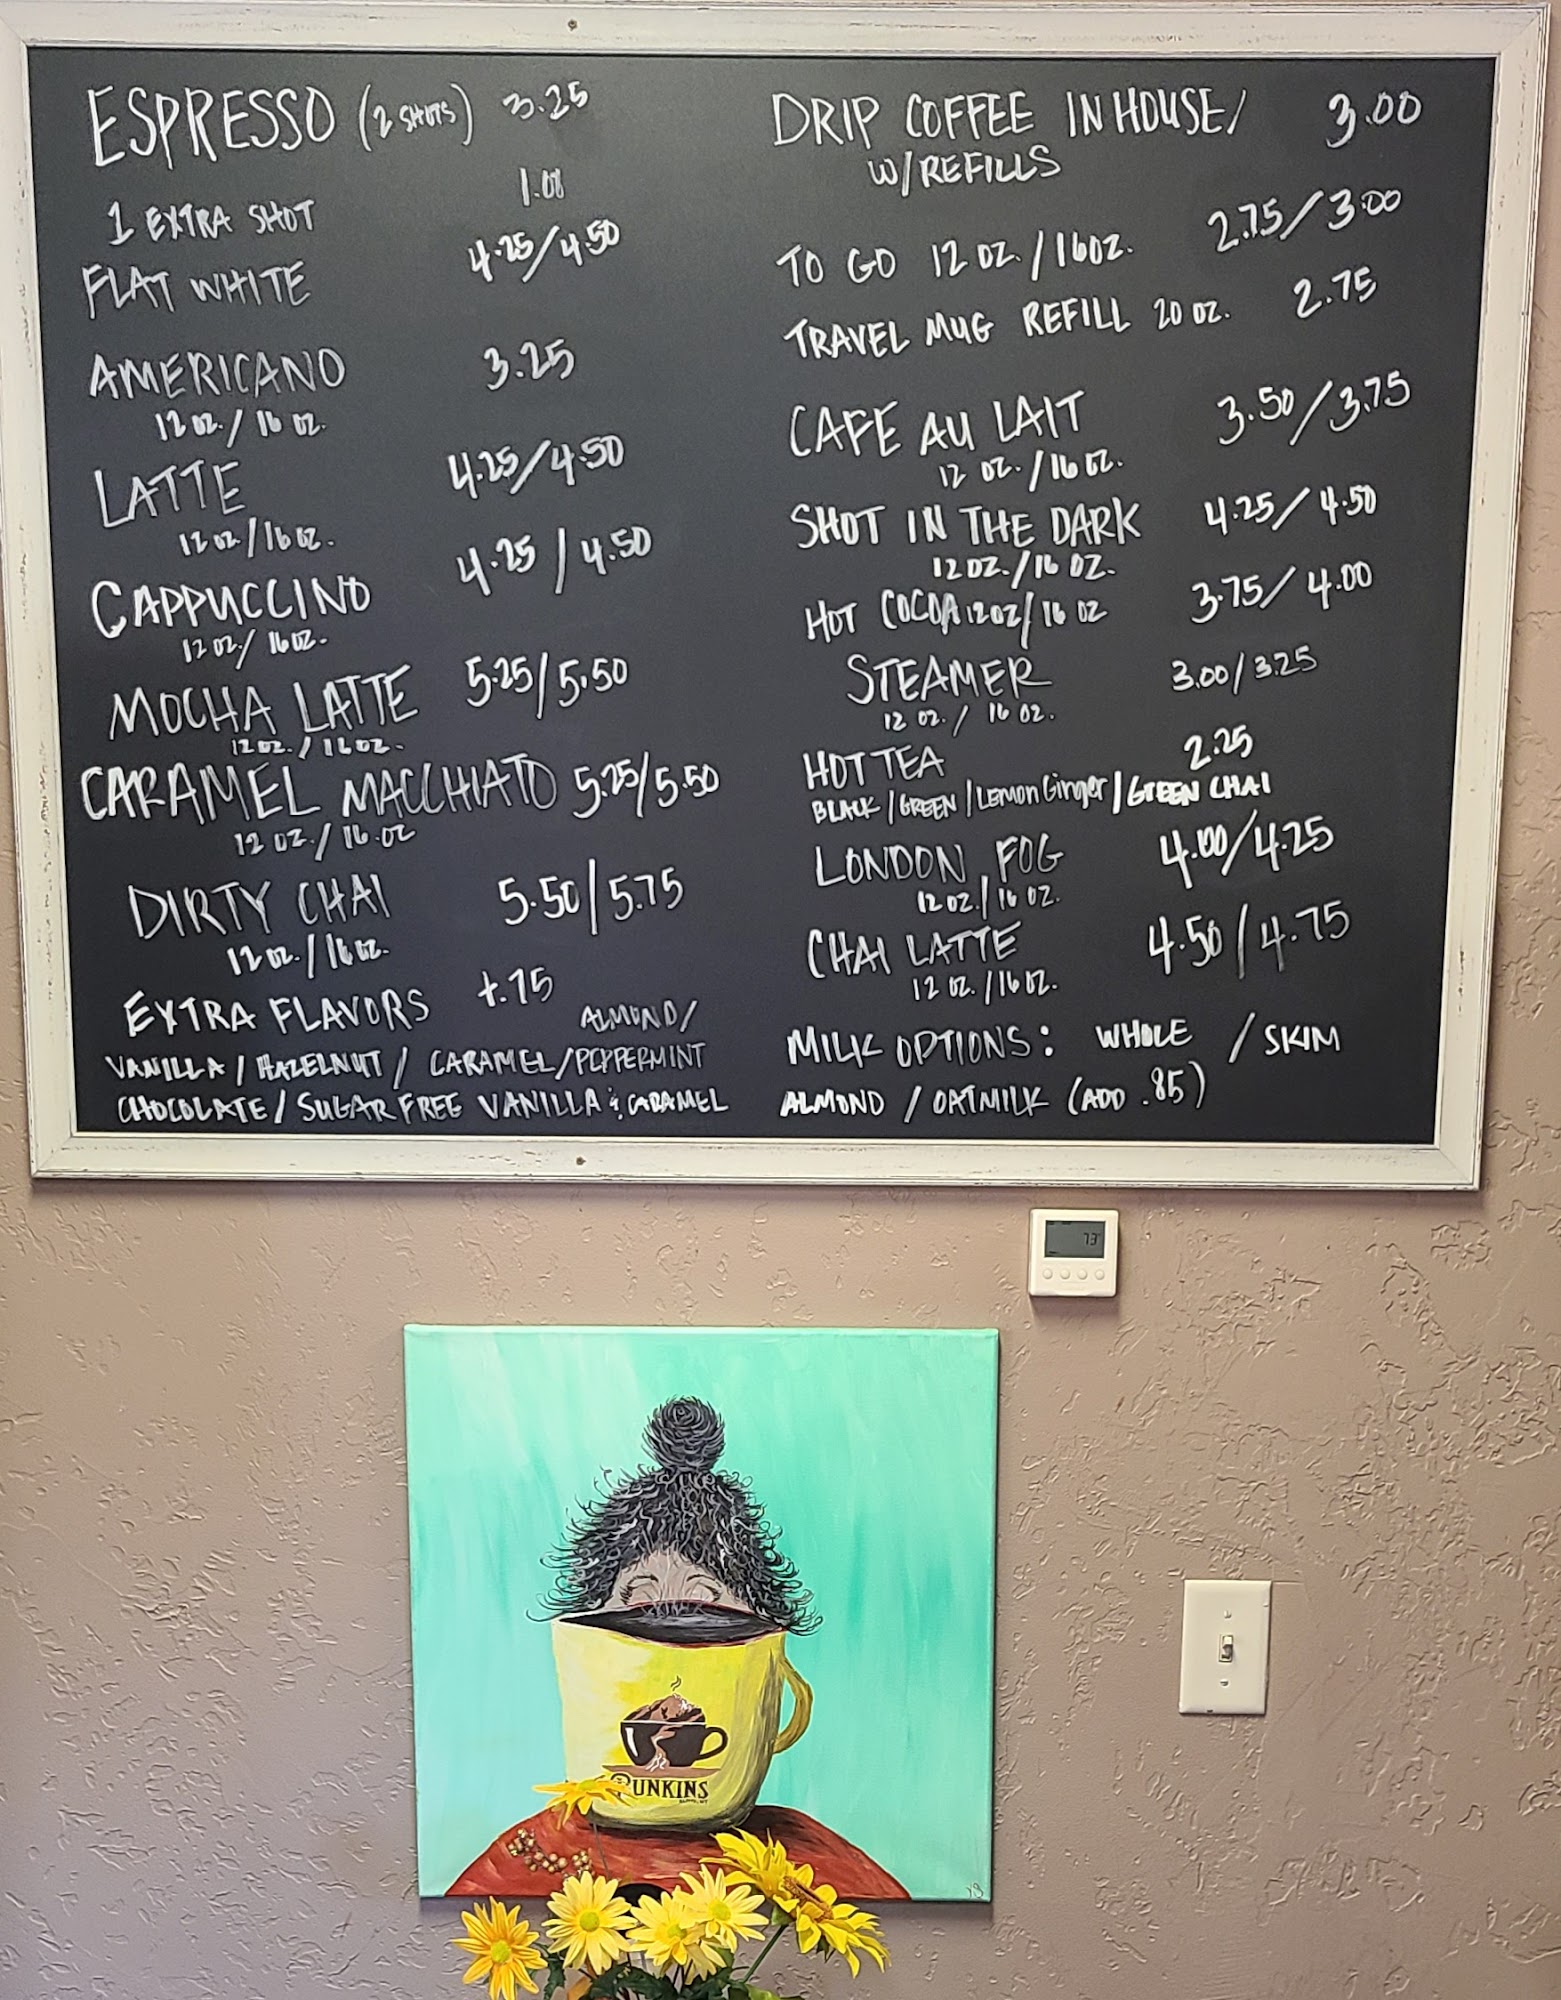 ESPRESSO (2 SHOTS) 3.25
1 EXTRA SHOT 1.00
FLAT WHITE 4.25/4.50
AMERICANO 3.25
12 OZ./16 OZ.
LATTE 4.25/4.50
12 OZ/16 OZ.
CAPPUCCINO 4.25/4.50
12 OZ/16 OZ.
MOCHA LATTE 5.25/5.50
12 OZ./16 OZ.
CARAMEL MACCHIATO 5.25/5.50
12 OZ./16 OZ
DIRTY CHAI 5.50/5.75
12 OZ./16 OZ.
EXTRA FLAVORS +.75 ALMOND/
VANILLA/HAZELNUT/CARAMEL/PEPPERMINT
CHOCOLATE/SUGAR FREE VANILLA & CARAMEL
DRIP COFFEE IN HOUSE/ 3.00
W/REFILLS
TO GO 12 OZ./16 OZ. 2.75/3.00
TRAVEL MUG REFILL 20 OZ. 2.75
CAFE AU LAIT 3.50/3.75
12 OZ./16 OZ.
SHOT IN THE DARK 4.25/4.50
12 OZ./16 OZ.
HOT COCOA 12 OZ/16 OZ 3.75/4.00
STEAMER 3.00/3.25
12 OZ./16 OZ.
HOT TEA 2.25
BLACK/GREEN/Lemon Ginger/GREEN CHAI
LONDON FOG 4.00/4.25
12 OZ./16 OZ.
CHAI LATTE 4.50/4.75
12 OZ./16 OZ.
MILK OPTIONS: WHOLE / SKIM
ALMOND / OATMILK (ADD .85)
73°
RUNKINS